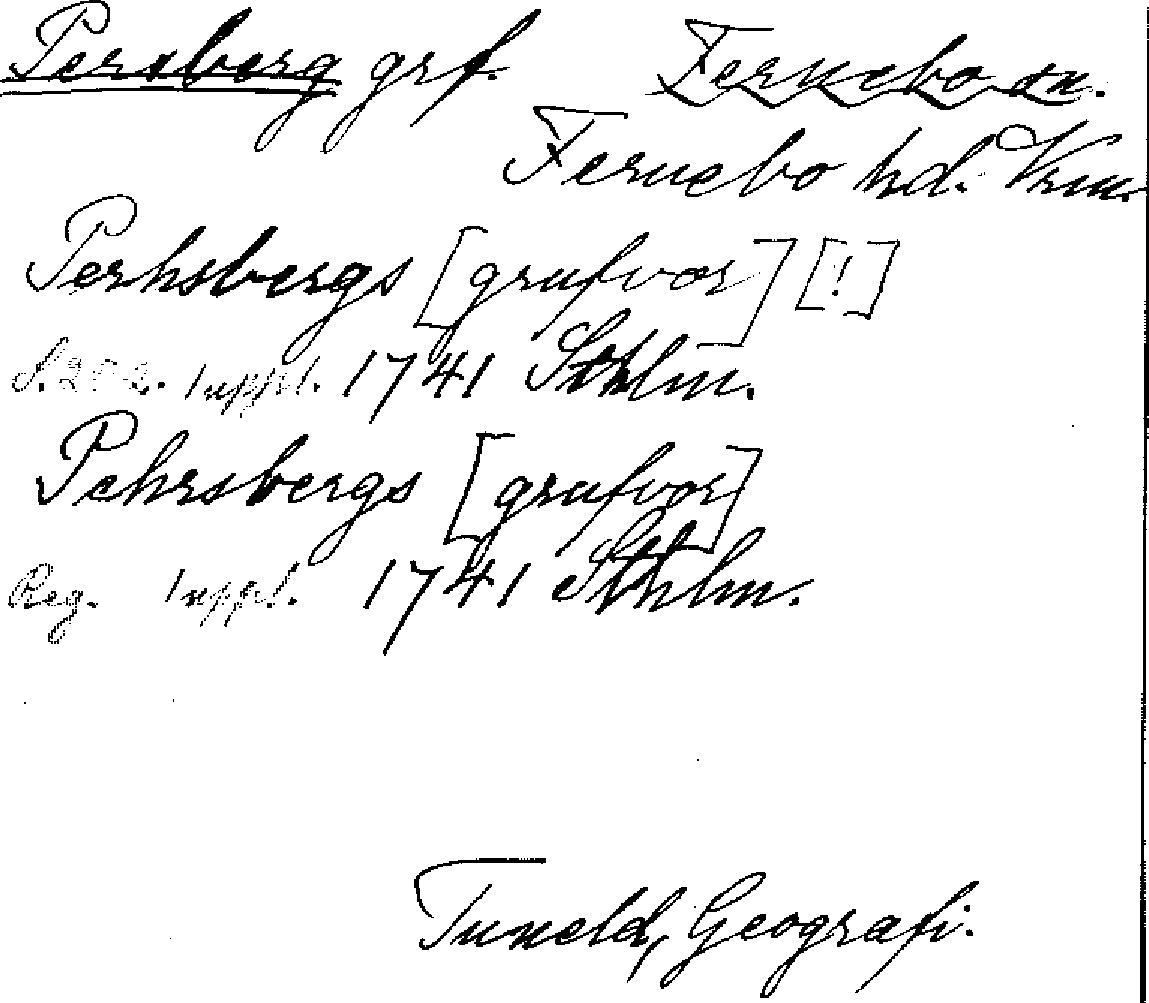 Persberg grf. Fernebo sn.
Fernebo hd. Vrm.
Perhsbergs [grufvor] [!]
S. 202. 1 uppl. 1741 Sthlm.
Pehrsbergs [grufvor]
Reg. 1 uppl. 1741 Sthlm.
Tuneld, Geografi.